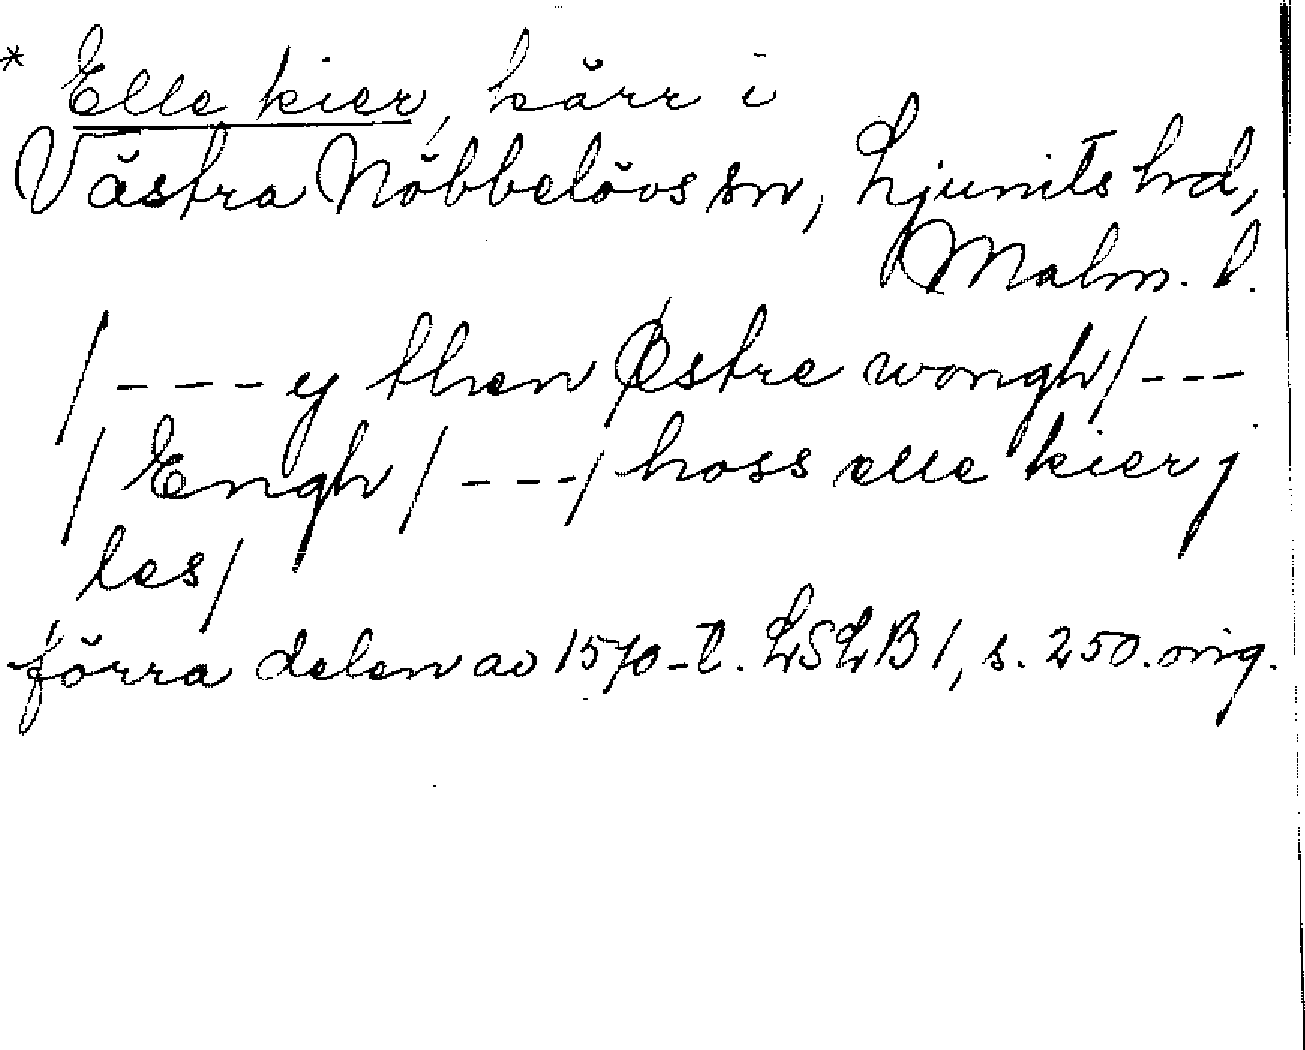 * Elle kier, kärr i
Västra Nöbbelövs sn, Ljunits hd,
Malm. l.
/---y then Østre wongh/---
/Engh/---/hoss elle kier j
les/
förra delen av 1570-t. LSLB 1, s. 250. orig.